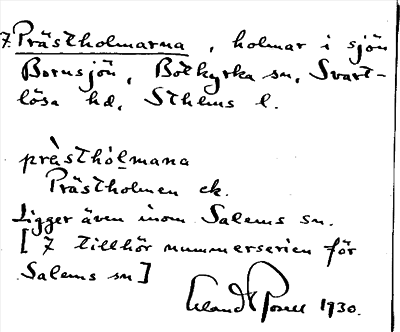 7. Prästholmarna, holmar i sjön
Bornsjön, Botkyrka sn, Svart-
lösa hd, Sthlms l.
prästhólmana
Prästholmen ek.
Ligger även inom Salems sn.
[7 tillhör nummerserien för
Salems sn]
1930.